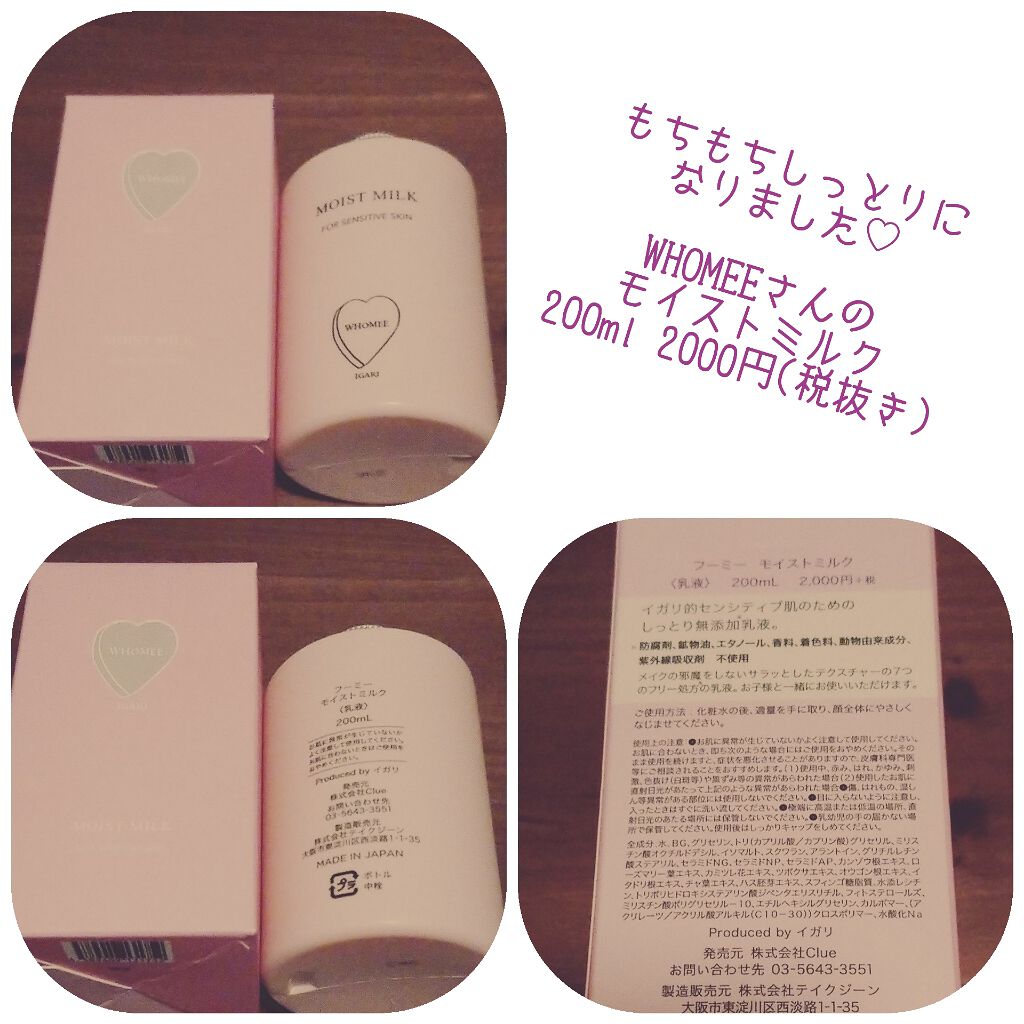 WHOMEE
IGARI
MOIST MILK
MOIST MILK
FOR SENSITIVE SKIN
WHOMEE
IGARI
もちもちしっとりに
なりました♡
WHOMEEさんの
モイストミルク
200ml 2000円(税抜き)
WHOMEE
IGARI
MOIST MILK
フーミー
モイストミルク
〈乳液〉
200mL
お肌に異常が生じていないか
よく注意して使用してください。
お肌に合わないときはご使用を
おやめください。
Produced by イガリ
発売元
株式会社Clue
お問い合わせ先
03-5643-3551
製造販売元
株式会社テイクジーン
大阪市東淀川区西淡路1-1-35
MADE IN JAPAN
プラ
ボトル
中栓
フーミー モイストミルク
〈乳液〉 200mL 2,000円+税
イガリ的センシティブ肌のための
しっとり無添加乳液。
※防腐剤、鉱物油、エタノール、香料、着色料、動物由来成分、
紫外線吸収剤 不使用
メイクの邪魔をしないサラッとしたテクスチャーの7つ
のフリー処方の乳液。お子様と一緒にお使いいただけます。
ご使用方法:化粧水の後、適量を手に取り、顔全体にやさしく
なじませてください。
使用上の注意 ●お肌に異常が生じていないかよく注意して使用してください。
お肌に合わないとき、即ち次のような場合にはご使用をおやめください。その
まま使用を続けますと、症状を悪化させることがありますので、皮膚科専門医
等にご相談されることをおすすめします。(1)使用中、赤み、はれ、かゆみ、刺
激、色抜け(白斑等)や黒ずみ等の異常があらわれた場合(2)使用したお肌に
直射日光があたって上記のような異常があらわれた場合●傷、はれもの、湿し
ん等異常がある部位には使用しないでください。●目に入らないように注意し、
入ったときはすぐに洗い流してください。●極端に高温または低温の場所、直
射日光のあたる場所には保管しないでください。●乳幼児の手の届かない場
所で保管してください。使用後はしっかりキャップをしめてください。
全成分:水、BG、グリセリン、トリ(カプリル酸/カプリン酸)グリセリル、ミリス
チン酸オクチルドデシル、イソマルト、スクワラン、アラントイン、グリチルレチン
酸ステアリル、セラミドNG、セラミドNP、セラミドAP、カンゾウ根エキス、ロ
ーズマリー葉エキス、カミツレ花エキス、ツボクサエキス、オウゴン根エキス、イ
タドリ根エキス、チャ葉エキス、ハス胚芽エキス、スフィンゴ糖脂質、水添レシチ
ン、トリポリヒドロキシステアリン酸ジペンタエリスリチル、フィトステロールズ、
ミリスチン酸ポリグリセリル-10、エチルヘキシルグリセリン、カルボマー、(ア
クリレーツ/アクリル酸アルキル(C10-30))クロスポリマー、水酸化Na
Produced by イガリ
発売元 株式会社Clue
お問い合わせ先 03-5643-3551
製造販売元 株式会社テイクジーン
大阪市東淀川区西淡路1-1-35